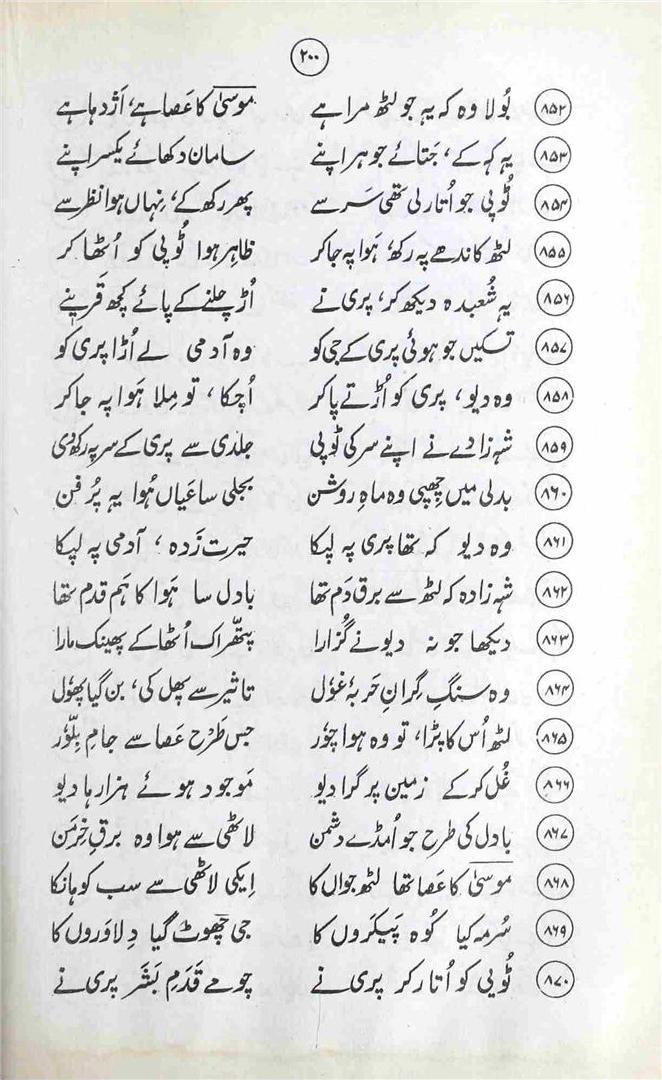 ۲۰۰
۸۵۲ بُولا وہ کہ یہ جو لٹھ مرا ہے موسیٰ کا عَصا ہے، اَژدہا ہے
۸۵۳ یہ کہہ کے، جَتائے جوہر اپنے سامان دکھائے یکسر اپنے
۸۵۴ ٹُوپی جو اُتار لی تھی سَر سے پھر رکھ کے، نِہاں ہوا نظر سے
۸۵۵ لٹھ کاندھے پہ رکھ، ہَوا پہ جا کر ظاہِر ہوا ٹُوپی کو اُٹھا کر
۸۵۶ یہ شُعبدہ دیکھ کر، پری نے اُڑ چلنے کے پائے کچھ قَرینے
۸۵۷ تسکیں جو ہوئی پری کے جی کو وہ آدمی لے اُڑا پری کو
۸۵۸ وہ دیو، پری کو اُڑتے پا کر اُچکا، تو مِلا ہَوا پہ جا کر
۸۵۹ شہ زادے نے اپنے سر کی ٹوپی جلدی سے پری کے سر پہ رکھ دی
۸۶۰ بدلی میں چھپی وہ ماہِ روشن بجلی سا عَیاں ہُوا یہ پُر فن
۸۶۱ وہ دیو کہ تھا پری پہ لپکا حیرت زَدہ، آدمی پہ لپکا
۸۶۲ شہ زادہ کہ لٹھ سے برق دَم تھا بادل سا ہَوا کا ہَم قدم تھا
۸۶۳ دیکھا جو نہ دیو نے گُزارا پتھّر اک اُٹھا کے پھینک مارا
۸۶۴ وہ سنگِ گرانِ حَربۂ غُوٗل تاثیر سے پھل کی، بن گیا پھوٗل
۸۶۵ لٹھ اُس کا پڑا، تو وہ ہوا چوٗر جس طَرْح عَصا سے جامِ بِلّوٗر
۸۶۶ غُل کر کے زمین پر گرا دیو مَوجود ہوئے ہزارہا دیو
۸۶۷ بادل کی طرح جو اُمڈے دشمن لاٹھی سے ہوا وہ برقِ خِرمن
۸۶۸ موسیٰ کا عَصا تھا لٹھ جواں کا اِیکی لاٹھی سے سب کو ہانکا
۸۶۹ سُرمہ کیا کُوہ پَیکَروں کا جی چھوٗٹ گیا دِلاوَروں کا
۸۷۰ ٹُوپی کو اُتار کر پری نے چومے قَدَمِ بَشَر پری نے